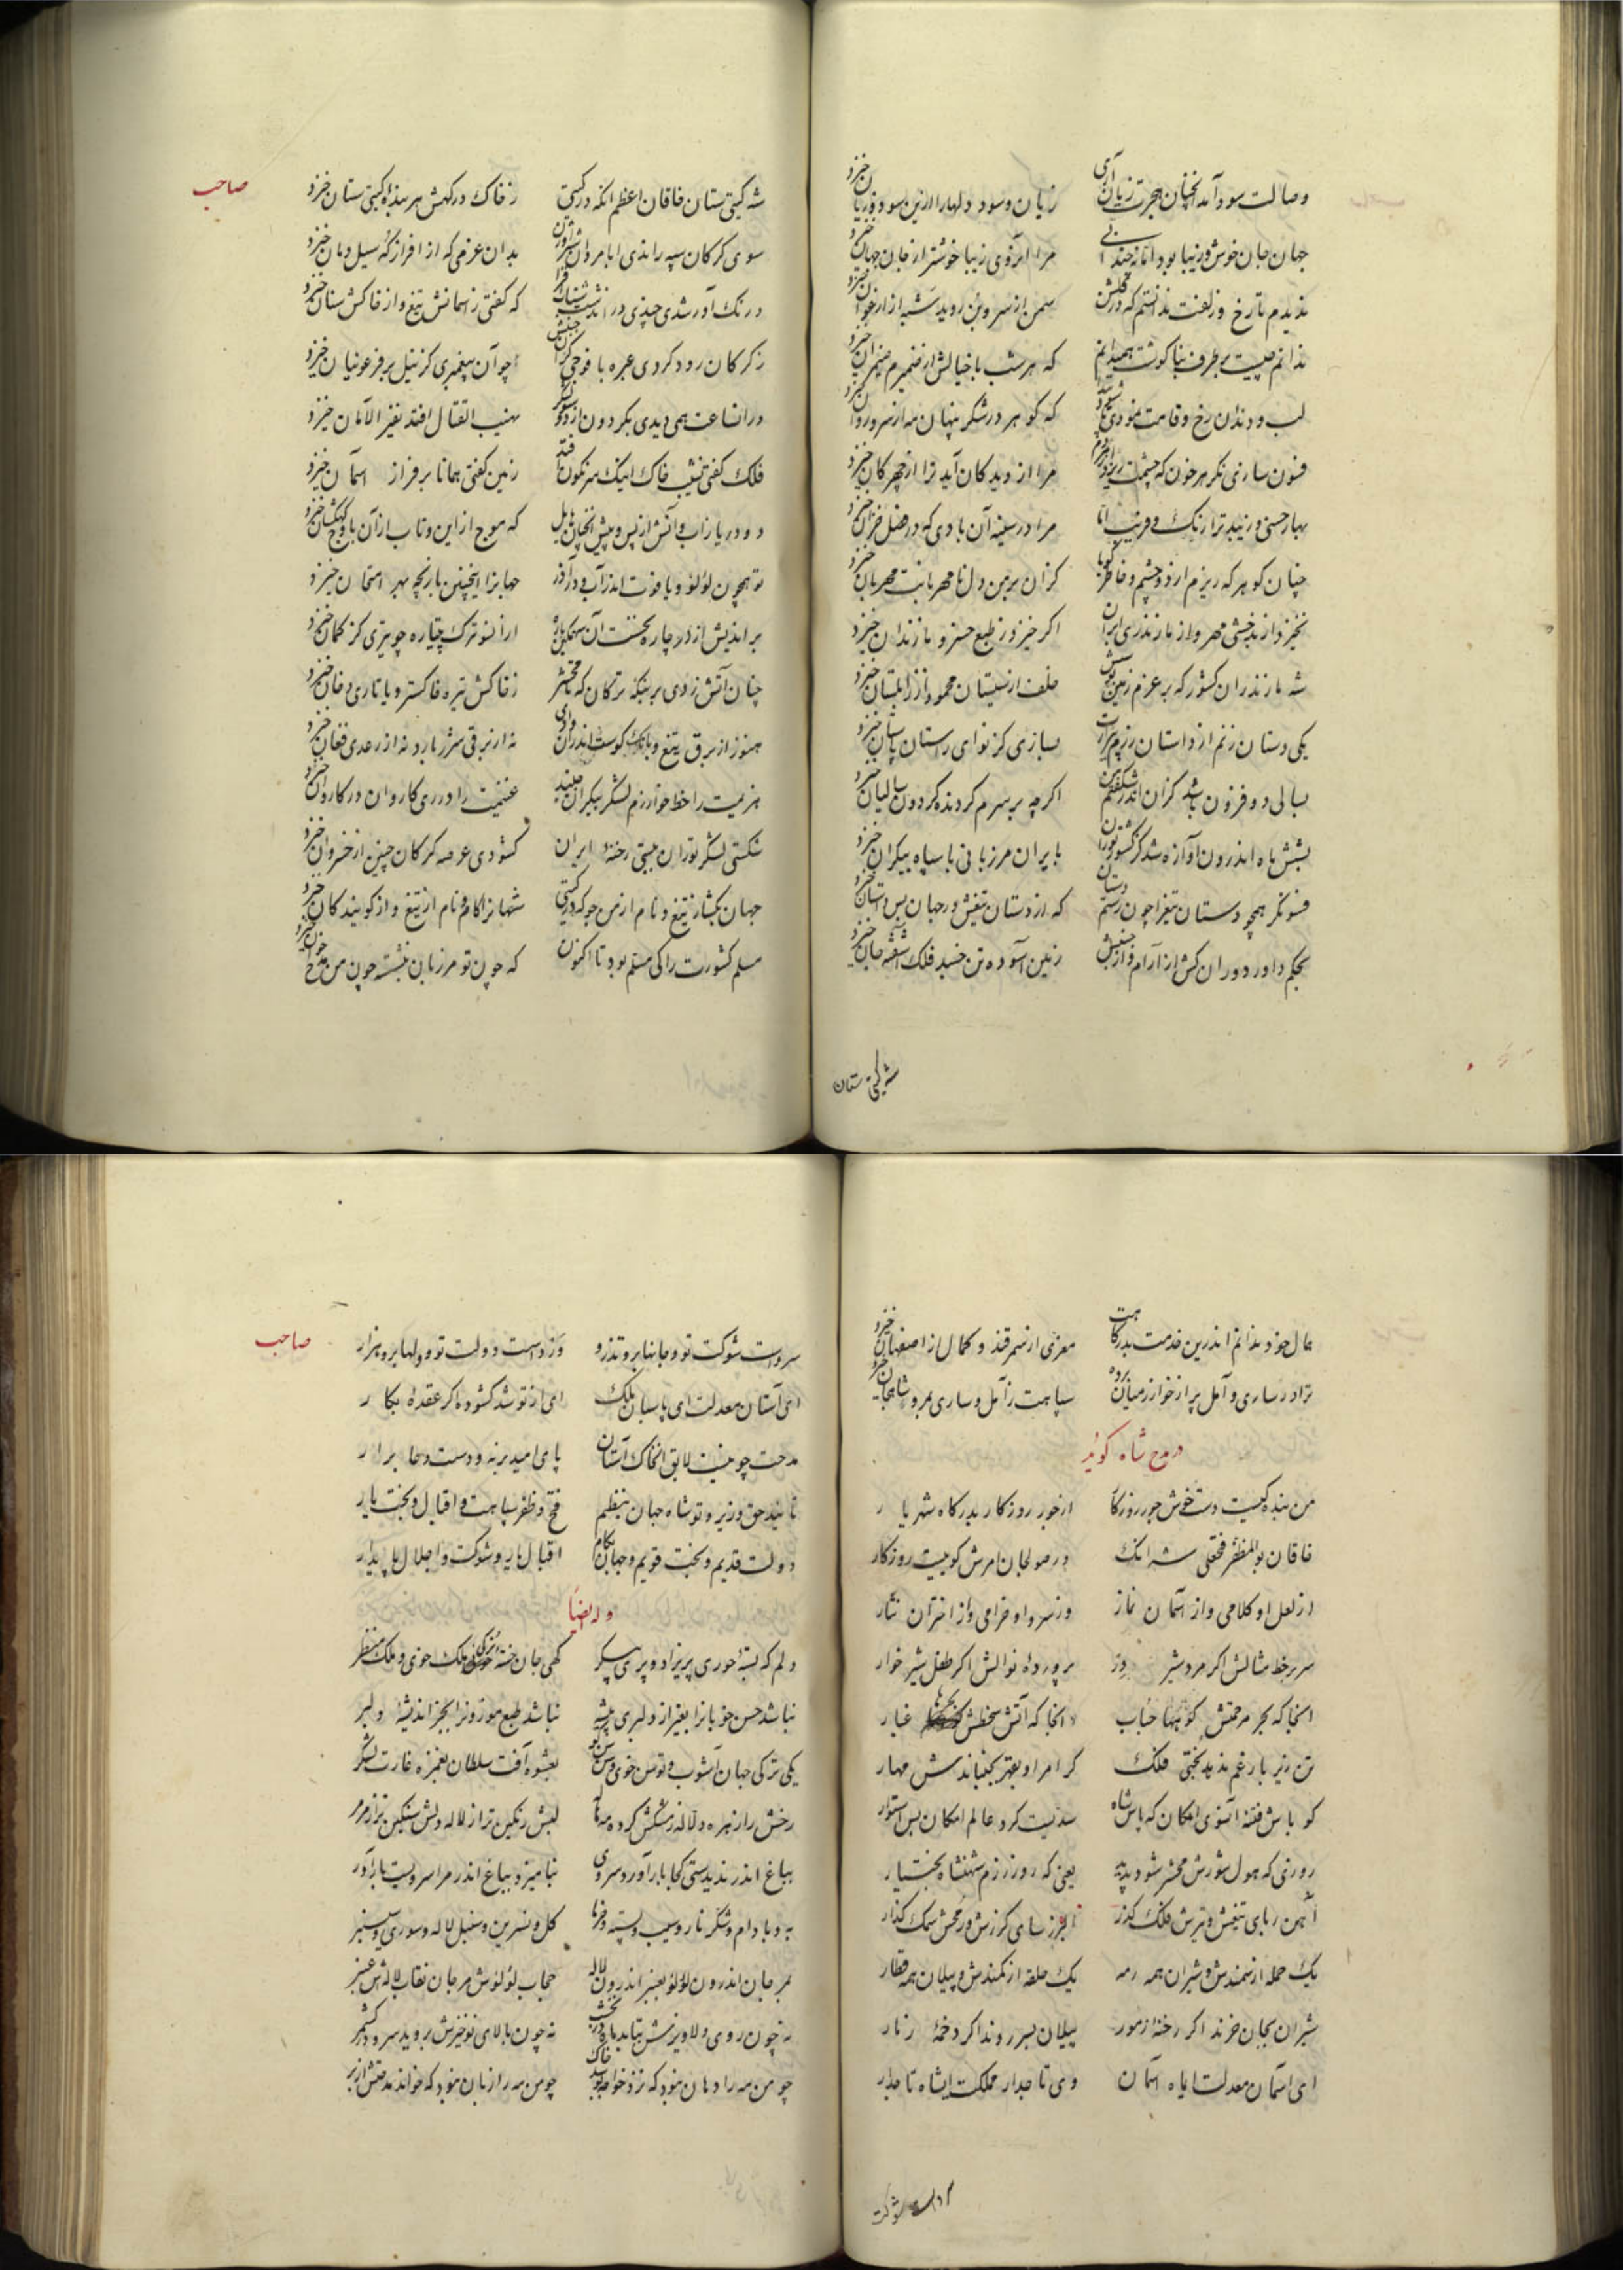 وصالت سود آمد آنچنان هجرت زیان آری
زیان و سود دلها را ازین سود و زیان خیزد
جهان جان خوش و زیبا بود اما نه چندانی
مرا از روی زیبا خوشتر از جان جهان خیزد
ندیدم تا رخ و زلفت ندانستم که در گلشن
سمن از سرو بن روید شبه از ارغوان خیزد
که هر شب با خیالش از ضمیرم
لب و دندان رخ و قامت نمودی
که گوهر در شکر پنهان مه از سرو روان خیزد
فسون سازی نگر هر خون که چشمت ریزد از مردم
مرا از دیدگان آید ترا از چهرگان خیزد
بهار حسنی و زیبد ترا رنگ و فریب اما
مرا در سینه آن بادی که در فصل خزان خیزد
چنان گوهر که ریزم از دو چشم و خاطر گویا
کزان بر من دل نامهربانت مهربان خیزد
نخیزد از بدخشی مهر و از مازندری ایرا
اگر خیزد ز طبع خسرو مازندران خیزد
شه مازندران کشور که بر عزم زمین بوسش
خلف از سیستان محمود از زابلستان خیزد
یکی دستان زنم از داستان رزم
بسازی کز نوای راستان باستان خیزد
بسالی دو فزون باشد کزان اندر شگفتم من
اگر چه بر سرم گردنده گردون سالیان خیزد
بشش ماه اندرون آوازه شد کز کشور توران
بایران مرزبانی با سپاه بیکران خیزد
فسونگر همچو دستان تیغزا چون رستم دستان
که از دستان تیغش در جهان بس داستان خیزد
بحکم داور دوران کش از آرام و از جنبش
زمین آسوده تن خسبد فلک آشفته جان خیزد
شه گیتی ستان
صاحب
شه گیتی ستان خاقان اعظم آنکه در گیتی
ز خاک درگهش هر بنده گیتی ستان خیزد
سوی گرگان سپه راندی
بدان عزمی که از افراز که سیل دمان خیزد
درنگ آور شدی چندی در
که گفتی ز اسمانش تیغ و از خاکش سنان خیزد
ز گرگان رود کردی عبره با فوجی
چو آن پیغمبری کز نیل بر فرعونیان خیزد
در آنساعت همی دیدی بگردون از دو سو لشکر
مهیب القتال افتد نفیر الامان خیزد
فلک گفتی نشیب خاک اینک سرنگون افتد
زمین گفتی همانا بر فراز اسمان خیزد
دو دریا ز آب و آتش از پس و پیش آنچنان هایل
که موج از این و تاب از آن باوج کهکشان خیزد
تو همچون لؤلؤ و یاقوت اندر آب و در آذر
جهانرا اینچنین بازیچه بهر امتحان خیزد
بر اندیش از در چاره بجست آن
چو تیری کز کمان خیزد
چنان آتش زدی بر بنگه ترکان که تا محشر
ز خاکش تیره خاکستر و یا تاری دخان خیزد
هنوز از برق تیغ و بانگ کوست اندران وادی
نه از برقی شرر بارد نه از رعدی فغان خیزد
هزیمت را خط خوارزم لشکر بیکران بیند
غنیمت را در ری کاروان در کاروان خیزد
شکستی لشکر توران ببستی رخنه ایران
گشودی عرصه گرگان چنین از خسروان خیزد
جهان بگشا ز تیغ و نام از من جو که در گیتی
شهانرا کام و نام از تیغ و از گویندگان خیزد
مسلم کشورت را کی مسلم بود تا اکنون
که چون تو مرزبان بنشسته چون من مدح خوان خیزد
مال خود ندانم اندرین خدمت بدرگاهت
معزی از سمرقند و کمال از اصفهان خیزد
نژاد ساری و آمل پر از خوارزمیان برده
سپاهت ز آمل و ساری بمرو شاهجان خیزد
در مدح شاه گوید
من بنده کیست دستخوش جور روزگار
از جور روزگار بدرگاه شهریار
خاقان بوالمظفر فتحعلی شه آنک
در صولجان امرش گوییست روزگار
از لعل او کلامی و از آسمان نماز
وز سر و او خرامی و از اختران نثار
سر بر خط مثالش اگر مرد شیر وز
پرورده نوالش اگر طفل شیر خوار
آنجا که بحر مرحمتش کوهها حباب
و آنجا که آتش سخطش بحرها غبار
تن زیر بار غم ندهد بختی فلک
گر امر او بقهر بجنباندش مهار
کو باش فتنه آنسوی امکان که باس شاه
سدیست گرد عالم امکان بس استوار
روزی که هول شورش محشر شود پدید
یعنی که روز رزم شهنشاه بختیار
آهن ربای تیغش و تیرش فلک گذر
البرز سای گرزش و رمحش سمک گذار
یک حمله از سمندش و شیران همه رمه
یک حلقه از کمندش و پیلان همه قطار
شیران بجان خرند اگر رخنه ز مور
پیلان بسر روند اگر دخمه ز نار
ای آسمان معدلت ای ماه آسمان
وی تاجدار مملکت ای شاه تاجدار
سرواست شوکت
صاحب
سرواست شوکت تو و جانها برو تذرو
ورد است دولت تو و دلها برو هزار
ای آستان معدلت ای پاسبان ملک
ای از تو شد گشوده اگر عقده بکار
مدحت چو نیست لایق آنخاک آستان
پای امید برنه و دست دعا برار
تا نیید حق وزیر و تو شاه جهان بنظم
فتح و ظفر سپاهت و اقبال و بخت یار
دولت قدیم و بخت قویم و جهان بکام
اقبال یار و شوکت و اجلال پایدار
وله ایضاً
دلم که بسته حوری پریزاد و پری پیکر
گهی جان خسته ترکی ملک خوی و ملک منظر
نباشد حسن خوبانرا بغیر از دلبری پیشه
نباشد طبع موزونرا بجز اندیشه دلبر
یکی ترکی جهان آشوب و توسن خوی
بعشوه آفت سلطان بغمزه غارت لشکر
رخش را زهره و لاله
لبش رنگین تر از لاله دلش سنگین تر از مرمر
بباغ اندر ندیدستی کجا بار آورد سروی
بیا میزد بباغ اندر مرا سرویست بار آور
به و بادام و شکر نار و سیب و پسته و خرما
گل و نسرین و سنبل لاله و سوری و سیسنبر
بمرجان اندرون لؤلؤ بعنبر اندرون لاله
حجاب لؤلؤش مرجان نقاب لاله اش عنبر
نه چون روی دلاویزش بتابد ماه در نخشب
نه چون بالای نوخیزش بروید سرو در کشمر
چو من مه را دهان نبود که نزد خواجه بوسد خاک
چو من مه را زبان نبود که خواند مدحتش از بر